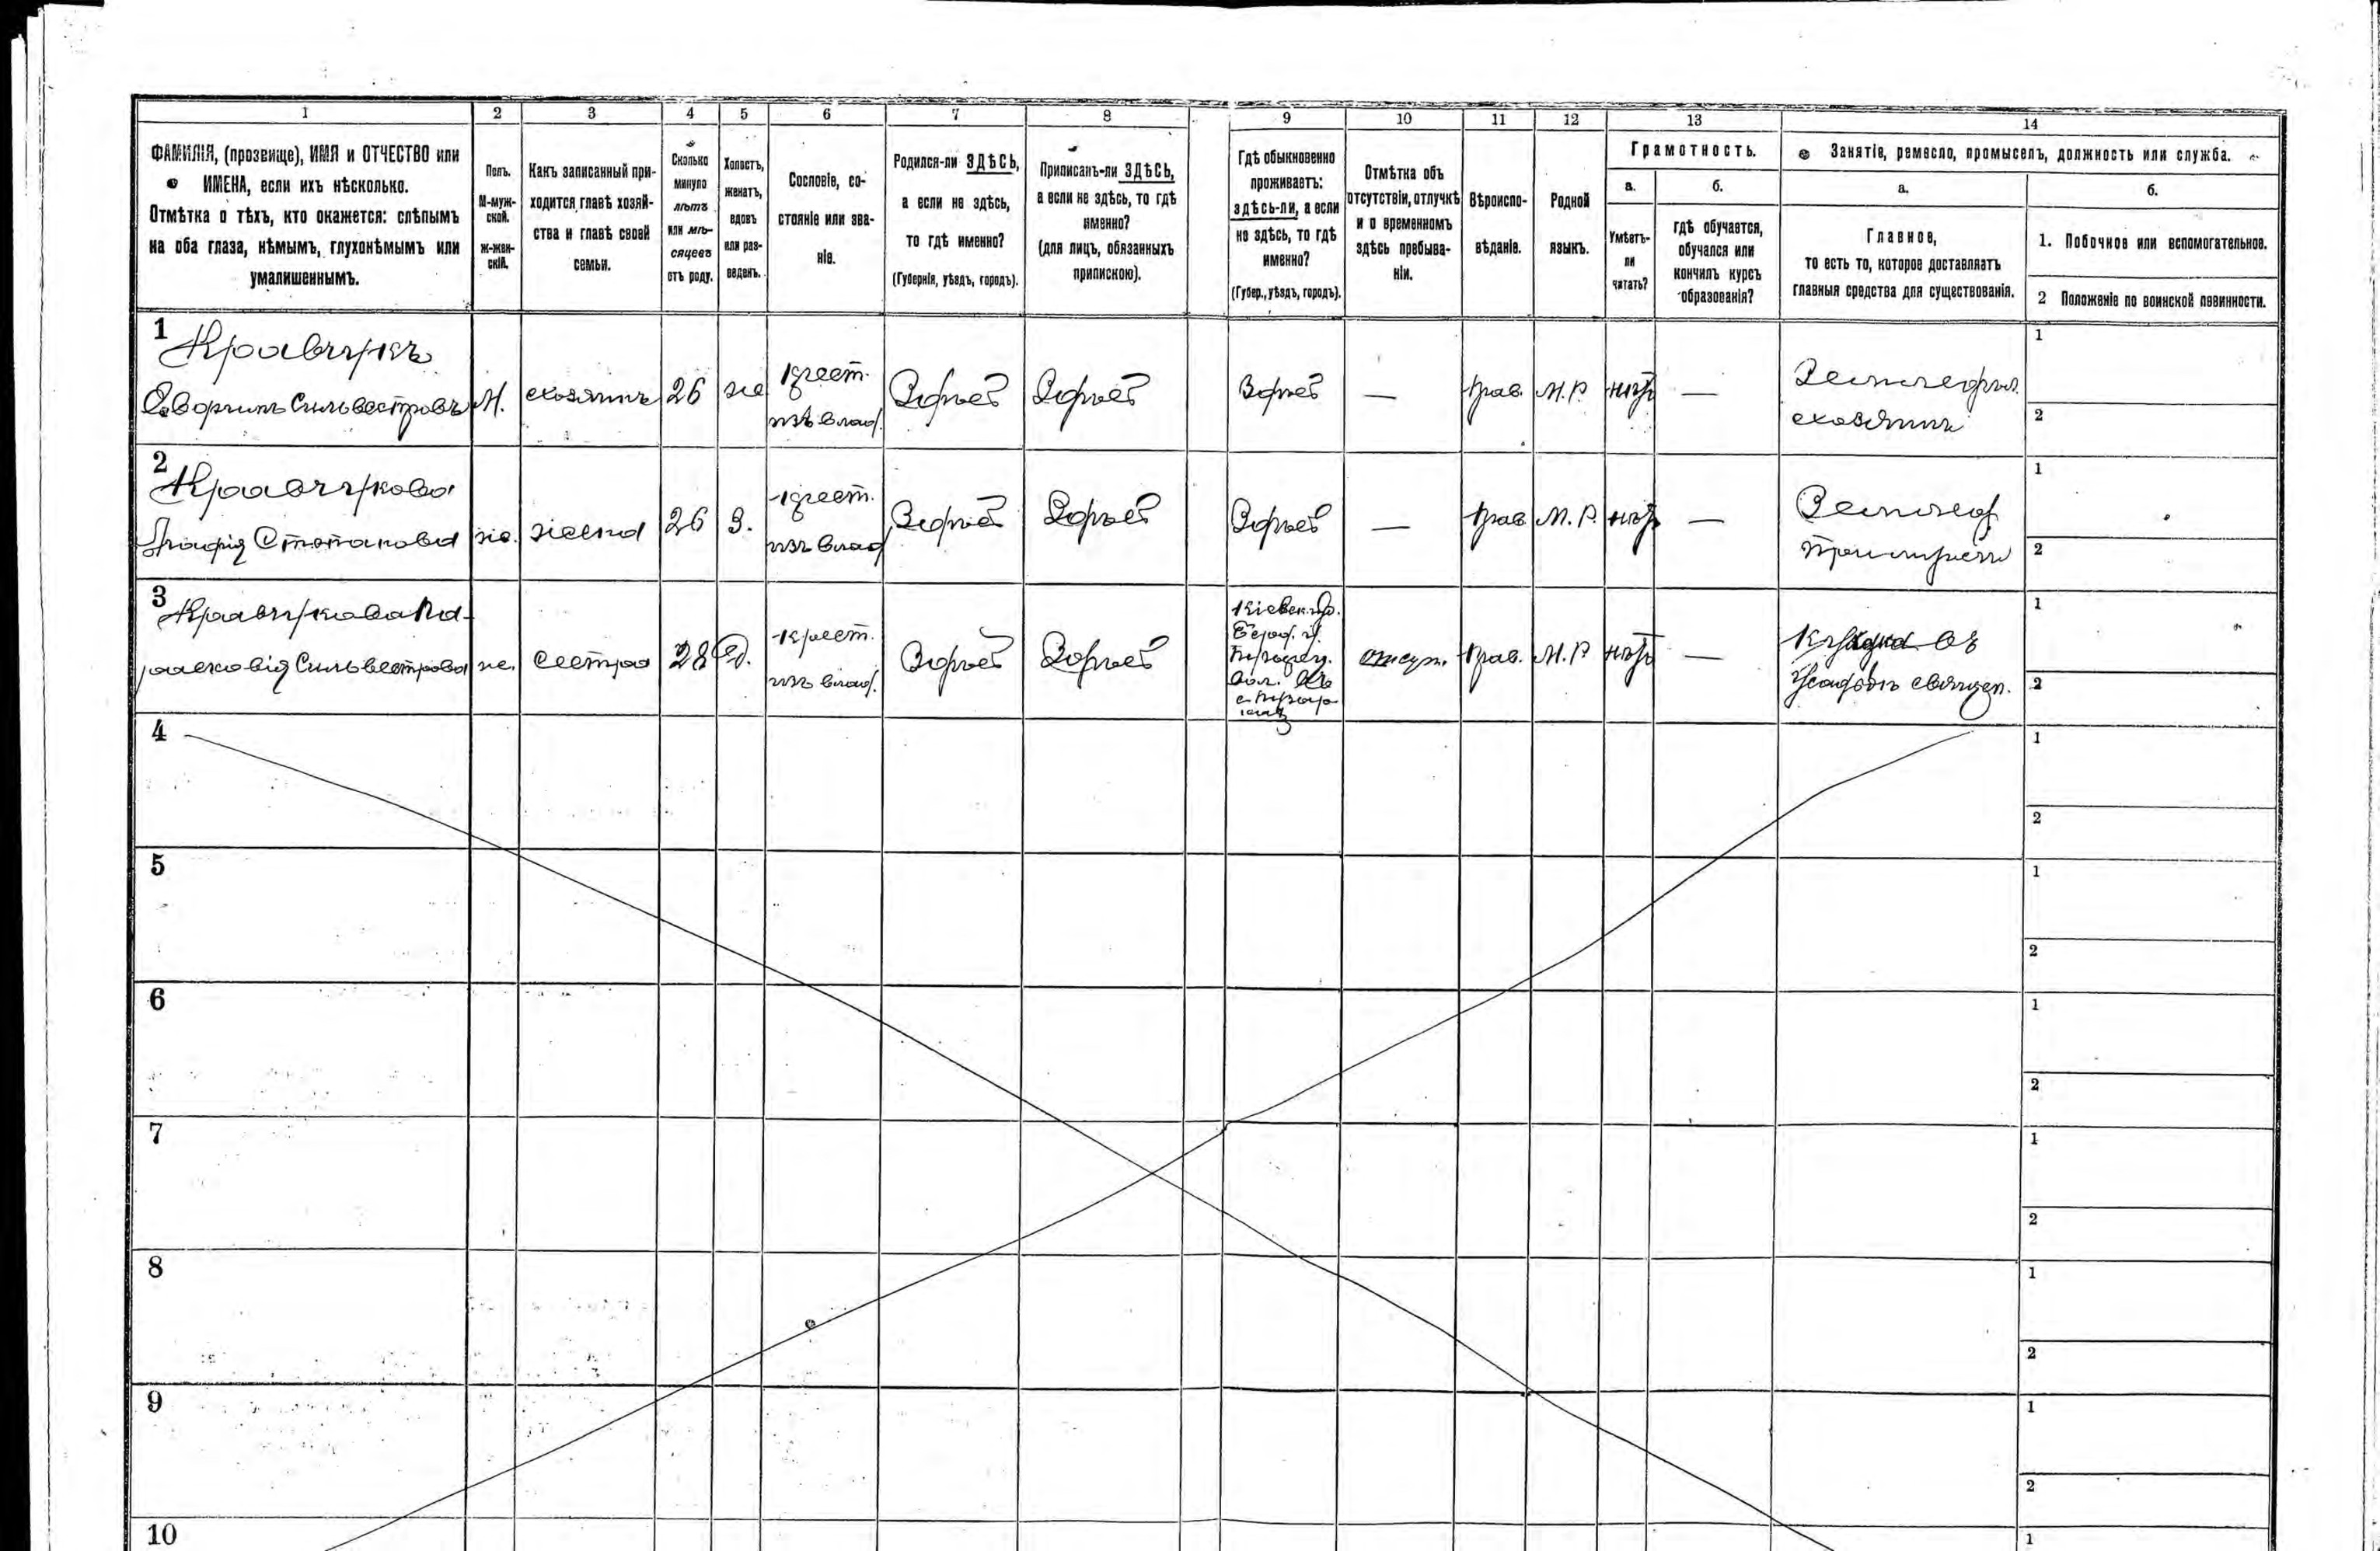 1 2 3 4 5 6 7 8 9 10 11 12 13 14
ФАМИЛІЯ, (прозвище), ИМЯ и ОТЧЕСТВО или
ИМЕНА, если ихъ нѣсколько.
Отмѣтка о тѣхъ, кто окажется: слѣпымъ
на оба глаза, нѣмымъ, глухонѣмымъ или
умалишеннымъ.
Полъ.
М-муж-
ской.
ж-жен-
скій.
Какъ записанный при-
ходится главѣ хозяй-
ства и главѣ своей
семьи.
Сколько
минуло
лѣтъ
или мѣ-
сяцевъ
отъ роду.
Холостъ,
женатъ,
вдовъ
или раз-
веденъ.
Сословіе, со-
стояніе или зва-
ніе.
Родился-ли ЗДѢСЬ,
а если не здѣсь,
то гдѣ именно?
(Губернія, уѣздъ, городъ).
Приписанъ-ли ЗДѢСЬ,
а если не здѣсь, то гдѣ
именно?
(для лицъ, обязанныхъ
припискою).
Гдѣ обыкновенно
проживаетъ:
здѣсь-ли, а если
не здѣсь, то гдѣ
именно?
(Губер., уѣздъ, городъ).
Отмѣтка объ
отсутствіи, отлучкѣ
и о временномъ
здѣсь пребыва-
ніи.
Вѣроиспо-
вѣданіе.
Родной
языкъ.
Грамотность.
а.
Умѣетъ-
ли
читать?
б.
гдѣ обучается,
обучался или
кончилъ курсъ
образованія?
Занятіе, ремесло, промыселъ, должность или служба.
а.
Главное,
то есть то, которое доставляетъ
главныя средства для существованія.
б.
1. Побочное или вспомогательное.
2 Положеніе по воинской повинности.
1
Кравчукъ
Сильвестровъ М. хозяинъ 26 же
крест.
изъ влад.
Здѣсь Здѣсь Здѣсь — Прав. М. Р. нѣтъ —
хозяинъ
1
2
2
Кравчукова
Степанова же. жена 26 З.
крест.
изъ влад
Здѣсь Здѣсь Здѣсь — Прав М. Р. нѣтъ —
1
2
3
Кравчукова Па-
раскевія Сильвестрова же. сестра 28
крест.
изъ влад.
Здѣсь Здѣсь
Кіевск. гу.
отсут. Прав. М. Р нѣтъ —
въ
священ.
1
2
4
1
2
5
1
2
6
1
2
7
1
2
8
1
2
9
1
2
10
1